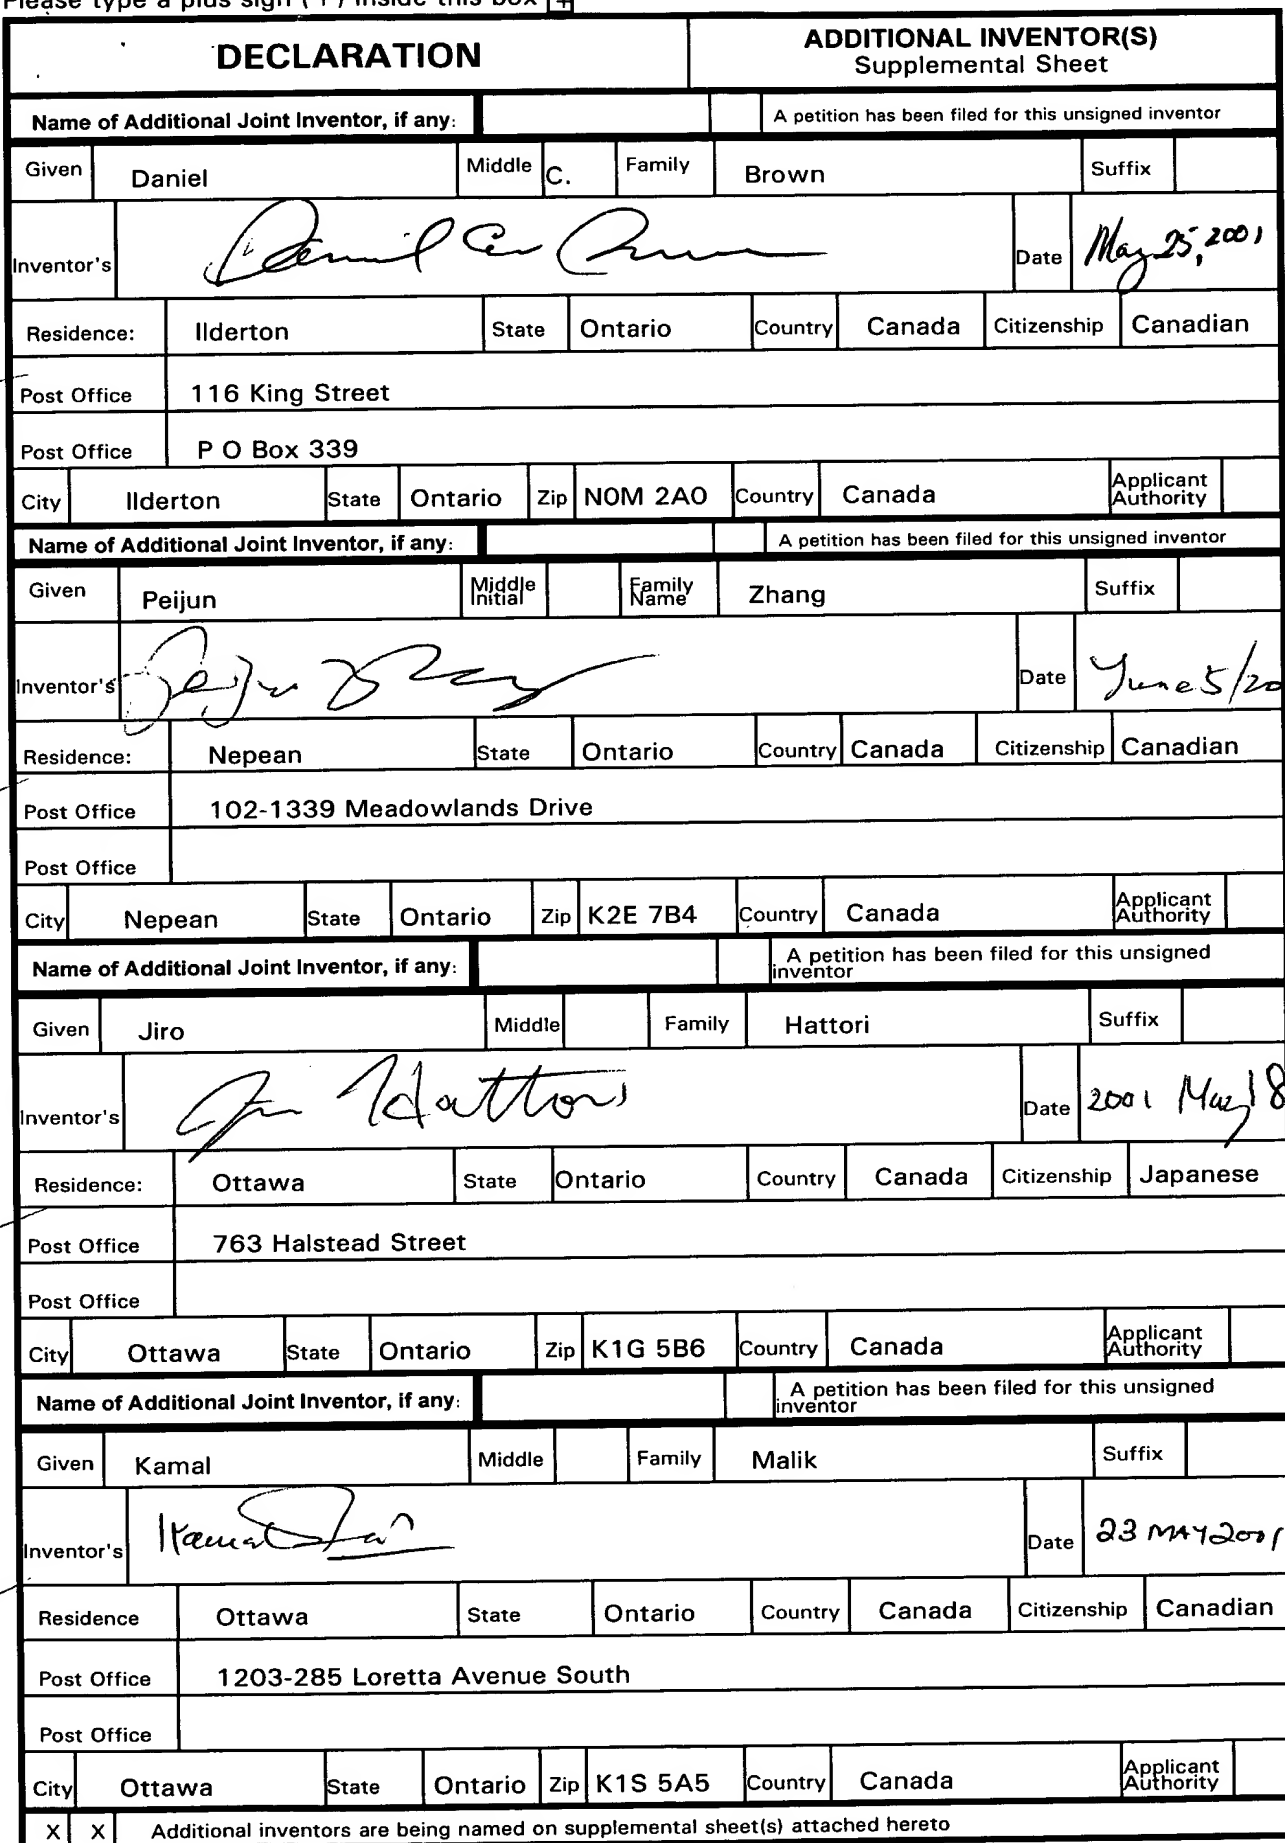 Please type a plus sign (+) inside this box +
DECLARATION
ADDITIONAL INVENTOR(S)
Supplemental Sheet
Name of Additional Joint Inventor, if any: A petition has been filed for this unsigned inventor
Given Daniel Middle C. Family Brown Suffix
Inventor's Date May 25, 2001
Residence: Ilderton State Ontario Country Canada Citizenship Canadian
Post Office 116 King Street
Post Office P O Box 339
City Ilderton State Ontario Zip N0M 2A0 Country Canada Applicant Authority
Name of Additional Joint Inventor, if any: A petition has been filed for this unsigned inventor
Given Peijun Middle Initial Family Name Zhang Suffix
Inventor's Date June 5/20
Residence: Nepean State Ontario Country Canada Citizenship Canadian
Post Office 102-1339 Meadowlands Drive
Post Office
City Nepean State Ontario Zip K2E 7B4 Country Canada Applicant Authority
Name of Additional Joint Inventor, if any: A petition has been filed for this unsigned inventor
Given Jiro Middle Family Hattori Suffix
Inventor's Jiro Hattori Date 2001 May 18
Residence: Ottawa State Ontario Country Canada Citizenship Japanese
Post Office 763 Halstead Street
Post Office
City Ottawa State Ontario Zip K1G 5B6 Country Canada Applicant Authority
Name of Additional Joint Inventor, if any: A petition has been filed for this unsigned inventor
Given Kamal Middle Family Malik Suffix
Inventor's Date 23 MAY 2001
Residence Ottawa State Ontario Country Canada Citizenship Canadian
Post Office 1203-285 Loretta Avenue South
Post Office
City Ottawa State Ontario Zip K1S 5A5 Country Canada Applicant Authority
X X Additional inventors are being named on supplemental sheet(s) attached hereto